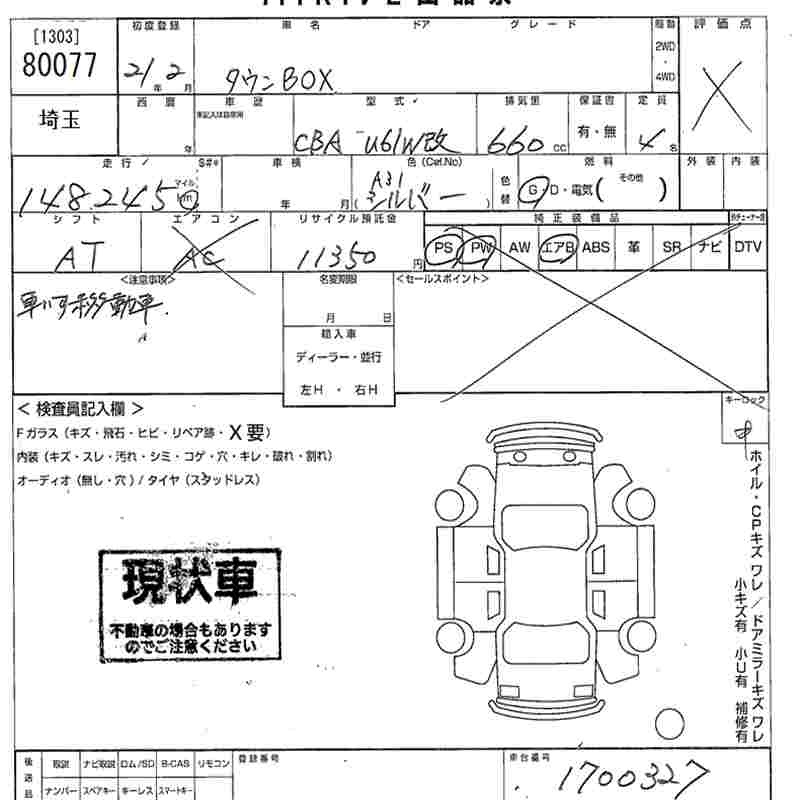 [1303]
80077
初度登録
21年 2月
車名
ドア
グレード
タウンBOX
駆動
2WD
・
4WD
評価点
埼玉
西暦
年
車歴
未記入は自家用
型式
CBA-U61W改
排気量
660cc
保証書
有・無
定員
4名
走行
S#*
148,245
マイル
km
車検
年 月
色(Cat.No)
A31
シルバー
色替
燃料
G・D・電気( その他 )
外装
内装
シフト
AT
エアコン
AC
リサイクル預託金
11350円
純正装備品
PS PW AW エアB ABS 革 SR ナビ DTV
<注意事項>
車いす移動車
名変期限
月 日
輸入車
ディーラー・並行
左H ・ 右H
<セールスポイント>
キーロック
<検査員記入欄>
Fガラス(キズ・飛石・ヒビ・リペア跡・X要)
内装(キズ・スレ・汚れ・シミ・コゲ・穴・キレ・破れ・割れ)
オーディオ(無し・穴)/タイヤ(スタッドレス)
現状車
不動車の場合もあります
のでご注意ください
ホイル・CPキズ ワレ/ドアミラーキズ ワレ
小キズ有 小U有 補修有
後送品
取説 ナビ取説 ロム/SD B-CAS リモコン
ナンバー スペアキー キーレス スマートキー
登録番号
車台番号
1700327